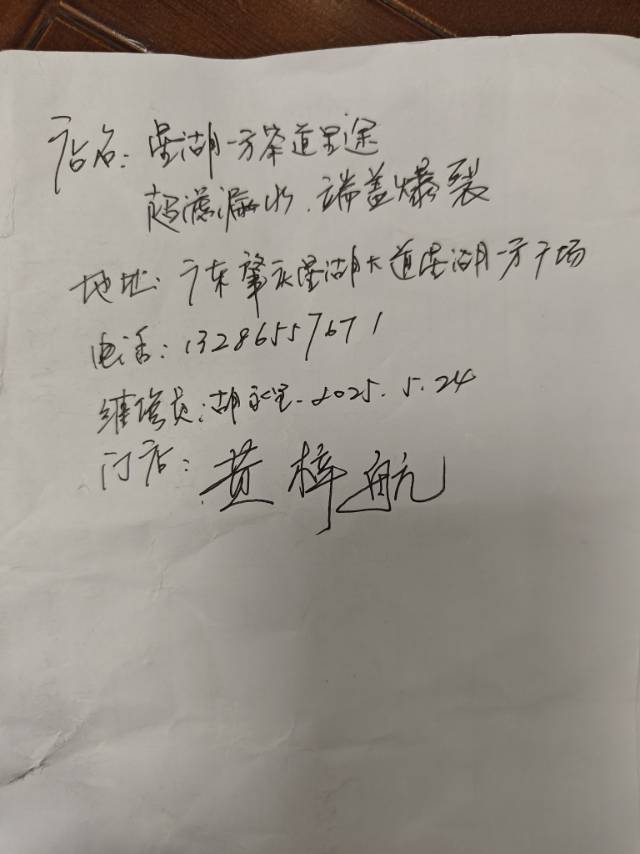 店名：星湖一方茶道里途
超滤漏水.端盖爆裂
地址：广东肇庆星湖大道星湖一方广场
电话：13286557671
维修员：胡.2025.5.24
门店：黄梓航